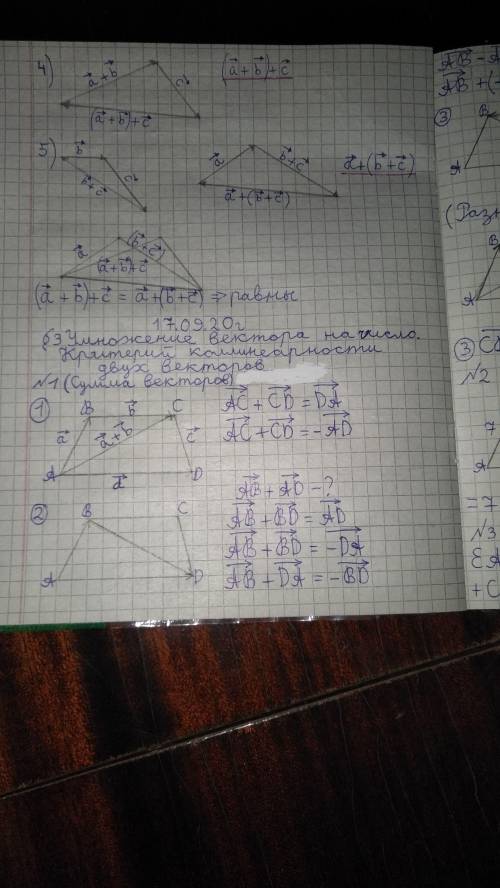 4) a⃗+b⃗ c⃗ (a⃗+b⃗)+c⃗
(a⃗+b⃗)+c⃗
5) b⃗ c⃗ b⃗+c⃗ a⃗ b⃗+c⃗ a⃗+(b⃗+c⃗)
a⃗+(b⃗+c⃗)
a⃗ (b⃗+c⃗)
(a⃗+b⃗)+c⃗
(a⃗+b⃗)+c⃗ = a⃗+(b⃗+c⃗) ⇒ равны
17.09.20г
§3 Умножение вектора на число.
Критерий коллинеарности
двух векторов
№1 (Сумма векторов)
① B b⃗ C AC⃗ + CD⃗ = DA⃗
a⃗ a⃗+b⃗ c⃗ AC⃗ + CD⃗ = -AD⃗
A d⃗ D
AB⃗ + AD⃗ - ?
② B C AB⃗ + BD⃗ = AD⃗
AB⃗ + BD⃗ = -DA⃗
A D AB⃗ + DA⃗ = -BD⃗
AB⃗ - A
AB⃗ + (-
③ B
A
(Разн
B
A
③ CD
№2
7
A
= 7
№3
EA
+ C